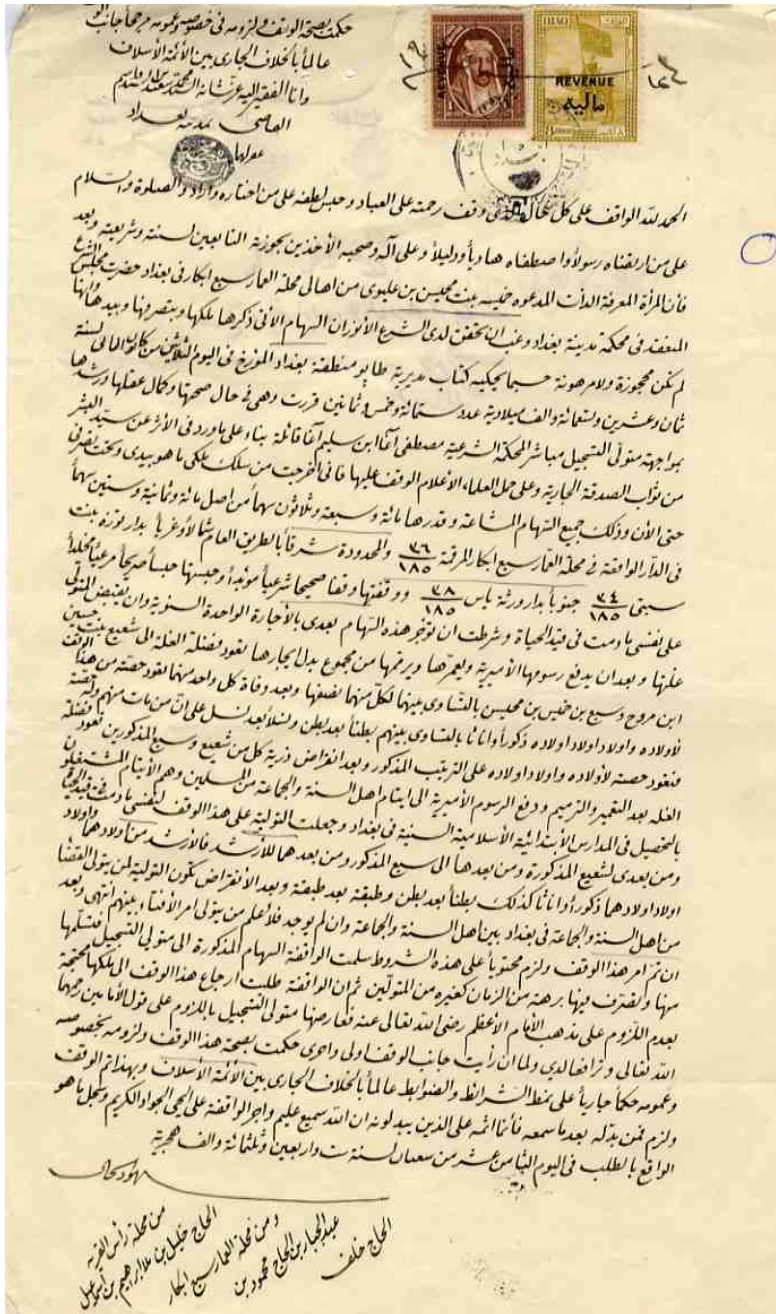 حكمت بصحة الوقف ولزومه في خصوصه وعمومه مرجحا جانب الوقف
عالماً بالخلاف الجاري بين الأئمة الأسلاف
وانا الفقير اليه عز شأنه السيد محمد سعيد
القاضي بمدينة بغداد
غفر لهما
IRAQ
REVENUE
ماليه
REVENUE
الحمد لله الواقف على كل حال الذي وقف رحمته على العباد وحبس لطفه على من اختاره واراد والصلوة والسلام
على من ارتضاه رسولاً واصطفاه هادياً ودليلاً وعلى آله وصحبه الآخذين بحوزته التابعين لسنته وشريعته وبعد
فأن المرأة المعرفة الذات المدعوه خميسه بنت محيسن بن عليوي من اهالي محلة العمار سبع ابكار في بغداد حضرت مجلس الشرع
المنعقد في محكمة مدينة بغداد وغب ان تحقق لدى الشرع الأنور ان السهام الآتي ذكرها ملكها وبتصرفها وبيدها وانها
لم تكن محجوزة ولا مرهونة حسبما يحكيه كتاب مديرية طابو منطقة بغداد المؤرخ في اليوم الثلاثين من كانون الثاني لسنة
ثمان وعشرين وتسعمائة والف ميلادية عدد ستمائة وخمس وثمانين قررت وهي في حال صحتها وكمال عقلها ورشدها
بمواجهة متولي التسجيل مباشر المحكمة الشرعية مصطفى آغا ابن سليم آغا قائلة بناء على ما ورد في الأثر عن سيد البشر
من ثواب الصدقة الجارية وعلى حمل العلماء الأعلام الوقف عليها فاني اخرجت من سلك ملكي ما هو بيدي وتحت تصرفي
حتى الآن وذلك جميع السهام المشاعة وقدرها مائة وسبعة وثلاثون سهماً من اصل مائة وثمانية وستين سهماً
في الدار الواقعة في محلة العمار سبع ابكار المرقمة ٣٦/١٨٥ والمحدودة شرقاً بالطريق العام شمالاً وغرباً بدار نوزة بنت
سبتي ٣٤/١٨٥ جنوباً بدار ورثة ياس ٣٨/١٨٥ ووقفتها وقفا صحيحا شرعياً مؤبداً وحبستها حبساً صريحاً مرعياً مخلداً
على نفسي ما دمت في قيد الحياة وشرطت ان تؤجر هذه السهام بعدي بالأجارة الواحدة السنوية وان يقبض المتولي
غلتها وبعد ان يدفع رسومها الأميرية ويعمرها ويرمها من مجموع بدل ايجارها تعود فضلة الغلة الى شعيع بنت حسين
ابن مروح وسبع بن خميس بن محيسن بالتساوي بينهما لكل منهما نصفها وبعد وفاة كل واحد منهما تعود حصته من هذا الوقف
لأولاده واولاد اولاد اولاده ذكوراً واناثاً بالتساوي بينهم بطناً بعد بطن ونسلاً بعد نسل على ان من مات منهم وله
فتعود حصته لأولاده واولاد اولاده على الترتيب المذكور وبعد انقراض ذرية كل من شعيع وسبع المذكورين تعود فضلة
الغلة بعد التعمير والترميم ودفع الرسوم الأميرية الى ايتام اهل السنة والجماعة من المسلمين وهم الأيتام المشتغلون
بالتحصيل في المدارس الأبتدائية الأسلامية السنية في بغداد وجعلت التولية على هذا الوقف لنفسي ما دمت في قيد الحياة
ومن بعدي لشعيع المذكورة ومن بعدها الى سبع المذكور ومن بعدهما للأرشد فالأرشد من اولادهما واولاد
اولاد اولادهما ذكوراً واناثاً كذلك بطناً بعد بطن وطبقة بعد طبقة وبعد الأنقراض تكون التولية لمن يتولى القضاء
من اهل السنة والجماعة في بغداد بين اهل السنة والجماعة وان لم يوجد فلأعلم من يتولى امر الأفتاء بينهم انتهى وبعد
ان تم امر هذا الوقف ولزم محتوياً على هذه الشروط سلمت الواقفة السهام المذكورة الى متولي التسجيل فتسلمها
منها وتصرف فيها برهة من الزمان كغيره من المتولين ثم ان الواقفة طلبت ارجاع هذا الوقف الى ملكها محتجة
بعدم اللزوم على مذهب الأمام الأعظم رضي الله تعالى عنه فعارضها متولي التسجيل باللزوم على قول الأمامين رحمهما
الله تعالى وترافعا لدي ولما ان رأيت جانب الوقف اولى واحرى حكمت بصحة هذا الوقف ولزومه بخصوصه
وعمومه حكماً جارياً على نمط الشرائط والضوابط عالماً بالخلاف الجاري بين الأئمة الأسلاف وبهذا تم الوقف
ولزم فمن بدله بعد ما سمعه فأنما اثمه على الذين يبدلونه ان الله سميع عليم واجر الواقفة على الحي الجواد الكريم وسجل ما هو
الواقع بالطلب في اليوم الثامن عشر من شعبان لسنة ست واربعين وثلثمائة والف هجرية
شهود الحال
من محلة رأس القريه
الحاج خليل بن ملا ابراهيم بن اسماعيل
ومن محلة العمار سبع ابكار
عبد الجبار بن الحاج محمود بن
الحاج خلف